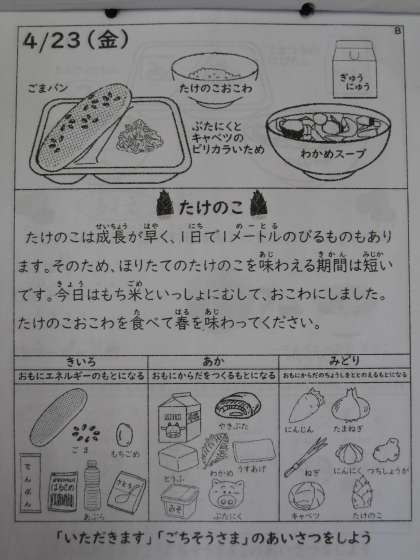 4/23(金)
B
ごまパン
たけのこおこわ
ぎゅうにゅう
ぶたにくと
キャベツの
ピリカラいため
わかめスープ
たけのこ
たけのこは成長が早く、1日で1メートルのびるものもあり
ます。そのため、ほりたてのたけのこを味わえる期間は短い
です。今日はもち米といっしょにむして、おこわにしました。
たけのこおこわを食べて春を味わってください。
きいろ
おもにエネルギーのもとになる
ごま
もちごめ
でんぷん
はるさめ
あぶら
さとう
あか
おもにからだをつくるもとになる
やきぶた
とうふ
わかめ
うすあげ
みそ
ぶたにく
みどり
おもにからだのちょうしをととのえるもとになる
にんじん
たまねぎ
ねぎ
にんにく
つちしょうが
キャベツ
たけのこ
「いただきます」「ごちそうさま」のあいさつをしよう